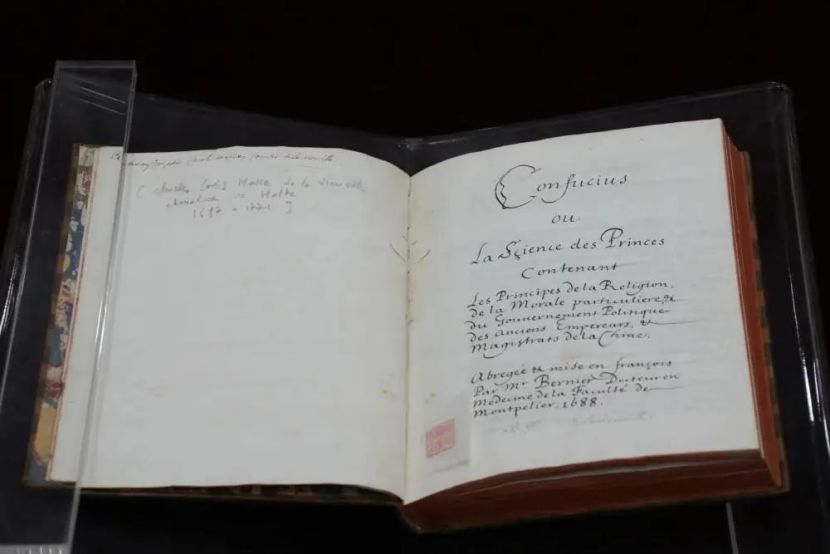 de la
chevalier de Malte
1697 - 1771 ]
Confucius
ou
La Sçience des Princes
Contenant
Les Principes de la Religion,
de la Morale particuliere, &
du Gouvernement Politique
des Anciens Empereurs, &
Magistrats de la Chine.
Abregée & mise en françois
Par Mr Bernier Docteur en
Medecine de la Faculté de
Montpelier. 1688.